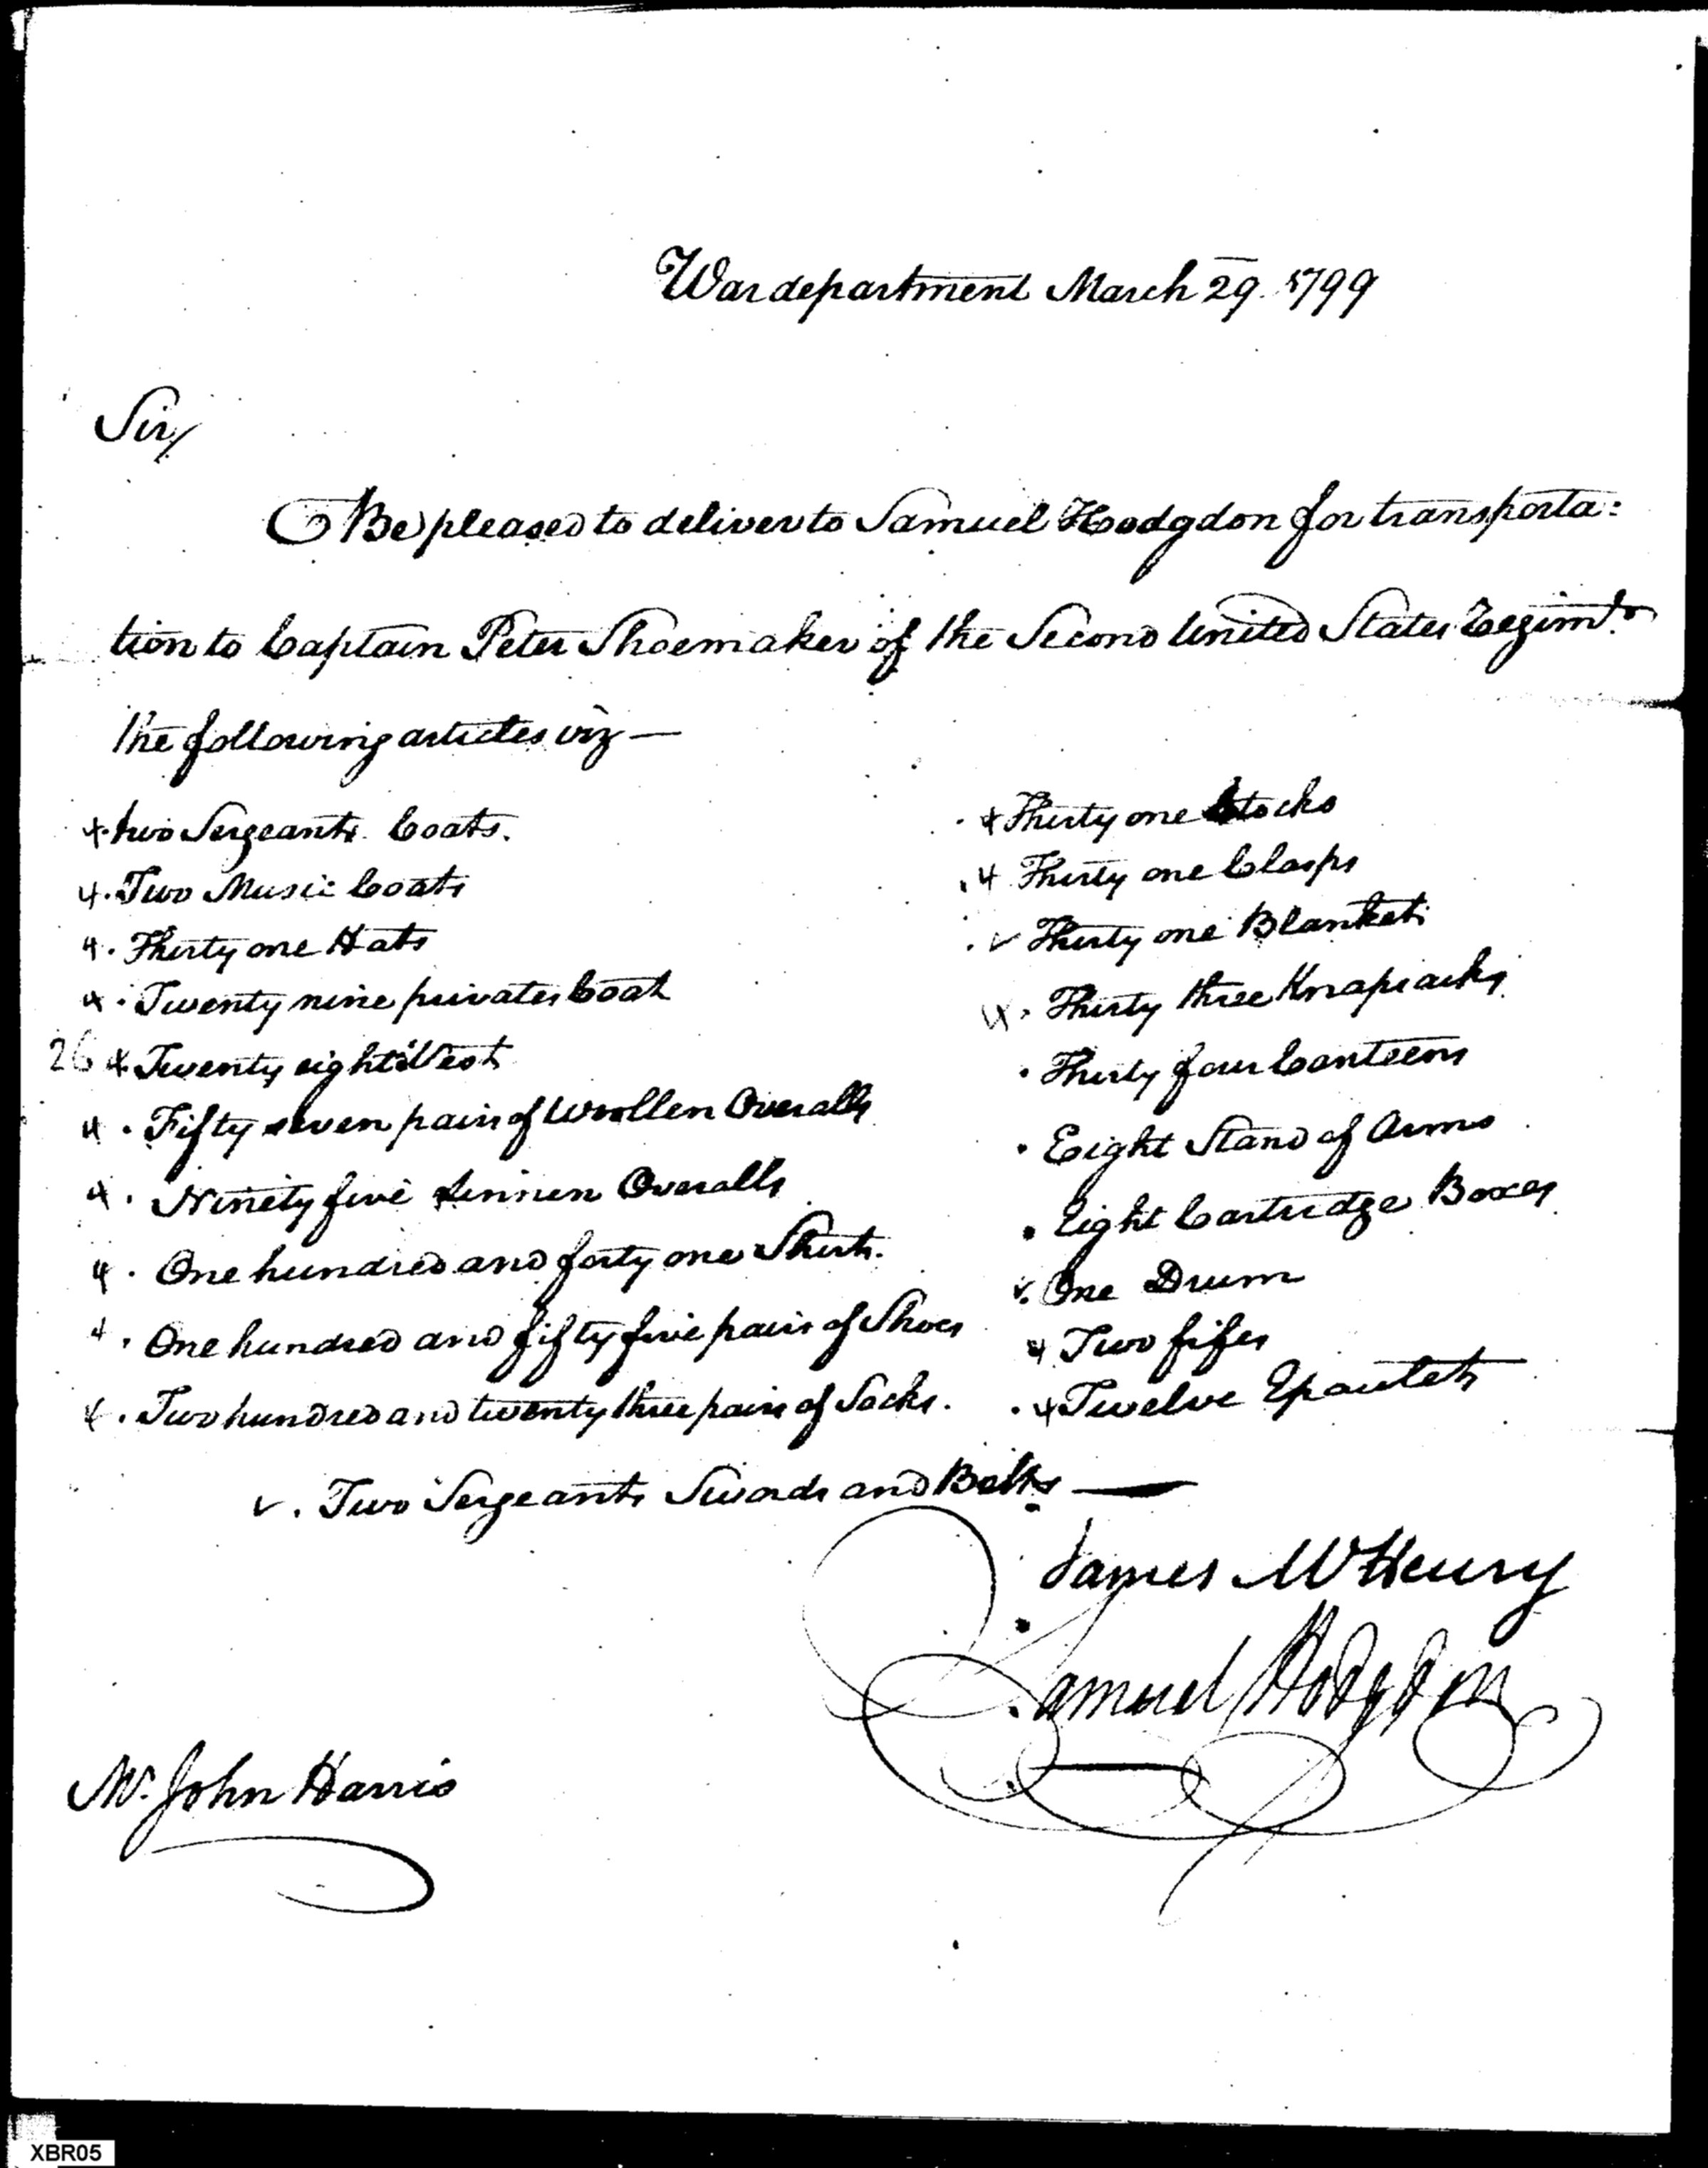 War department March 29. 1799
Sir/
Be pleased to deliver to Samuel Hodgdon for transporta:
tion to Captain Peter Shoemaker of the Second United States Regimt.
the following articles viz —
two Sergeants Coats.
Two Music Coats
Thirty one Hats
Twenty nine privates Coat
26 Twenty eight Vest
Fifty seven pairs of Woollen Overalls
Ninety five Linnen Overalls
One hundred and forty one Shirts.
One hundred and fifty five pairs of Shoes
Two hundred and twenty three pairs of Socks.
Thirty one Stocks
Thirty one Clasps
Thirty one Blankets
Thirty three Knapsacks
Thirty four Canteens
Eight Stand of Arms
Eight Cartridge Boxes
One Drum
Two fifes
Twelve Epaulets
Two Sergeants Swords and Belts —
James McHenry
Samuel Hodgdon
Mr. John Harris
XBR05